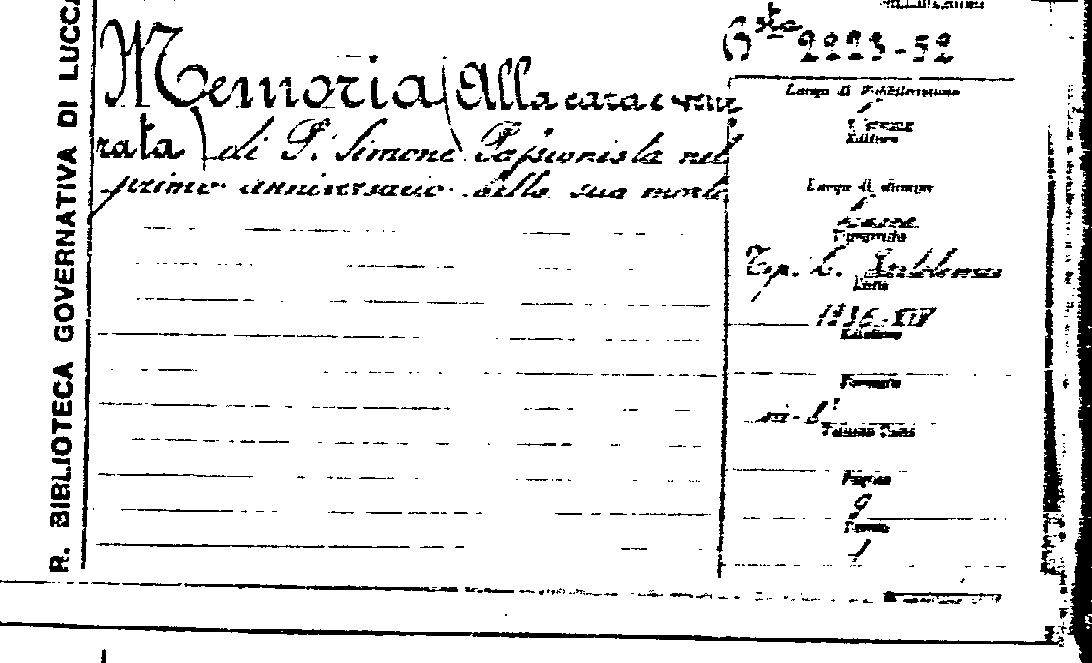 R. BIBLIOTECA GOVERNATIVA DI LUCCA
Memoria (Alla cara e vene
rata) di P. Simone Passionista nel
primo anniversario della sua morte
Bsta 2223-52
Luogo di Pubblicazione
Editore
Luogo di stampa
Tipografia
Tip. L.
Data
1936-XIV
Edizione
Formato
in-8°
Volume
Pagine
9
1